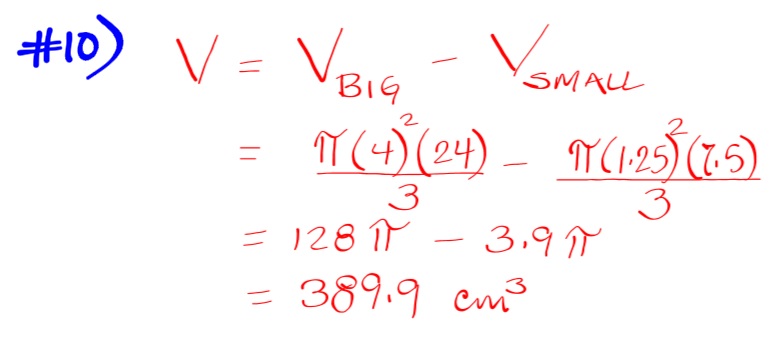 #10) V = V_BIG - V_SMALL
= π(4)²(24)/3 - π(1.25)²(7.5)/3
= 128π - 3.9π
= 389.9 cm³